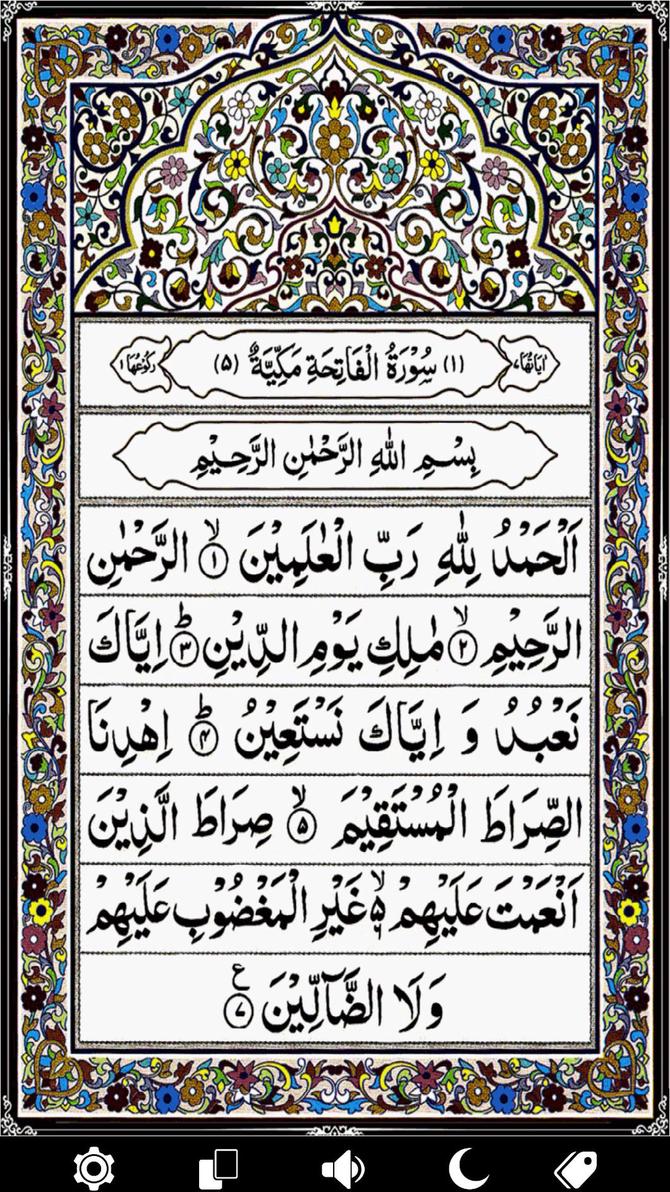 اٰيَاتُهَا ٧ (١) سُوْرَةُ الْفَاتِحَةِ مَكِّيَّةٌ (٥) رُكُوْعُهَا ١
بِسْمِ اللّٰهِ الرَّحْمٰنِ الرَّحِيْمِ
اَلْحَمْدُ لِلّٰهِ رَبِّ الْعٰلَمِيْنَ ۙ﴿١﴾ الرَّحْمٰنِ
الرَّحِيْمِ ۙ﴿٢﴾ مٰلِكِ يَوْمِ الدِّيْنِ ؕ﴿٣﴾ اِيَّاكَ
نَعْبُدُ وَ اِيَّاكَ نَسْتَعِيْنُ ؕ﴿۴﴾ اِهْدِنَا
الصِّرَاطَ الْمُسْتَقِيْمَ ۙ﴿۵﴾ صِرَاطَ الَّذِيْنَ
اَنْعَمْتَ عَلَيْهِمْ ۙ۵ غَيْرِ الْمَغْضُوْبِ عَلَيْهِمْ
وَلَا الضَّآلِّيْنَ ﴿٧﴾ ع